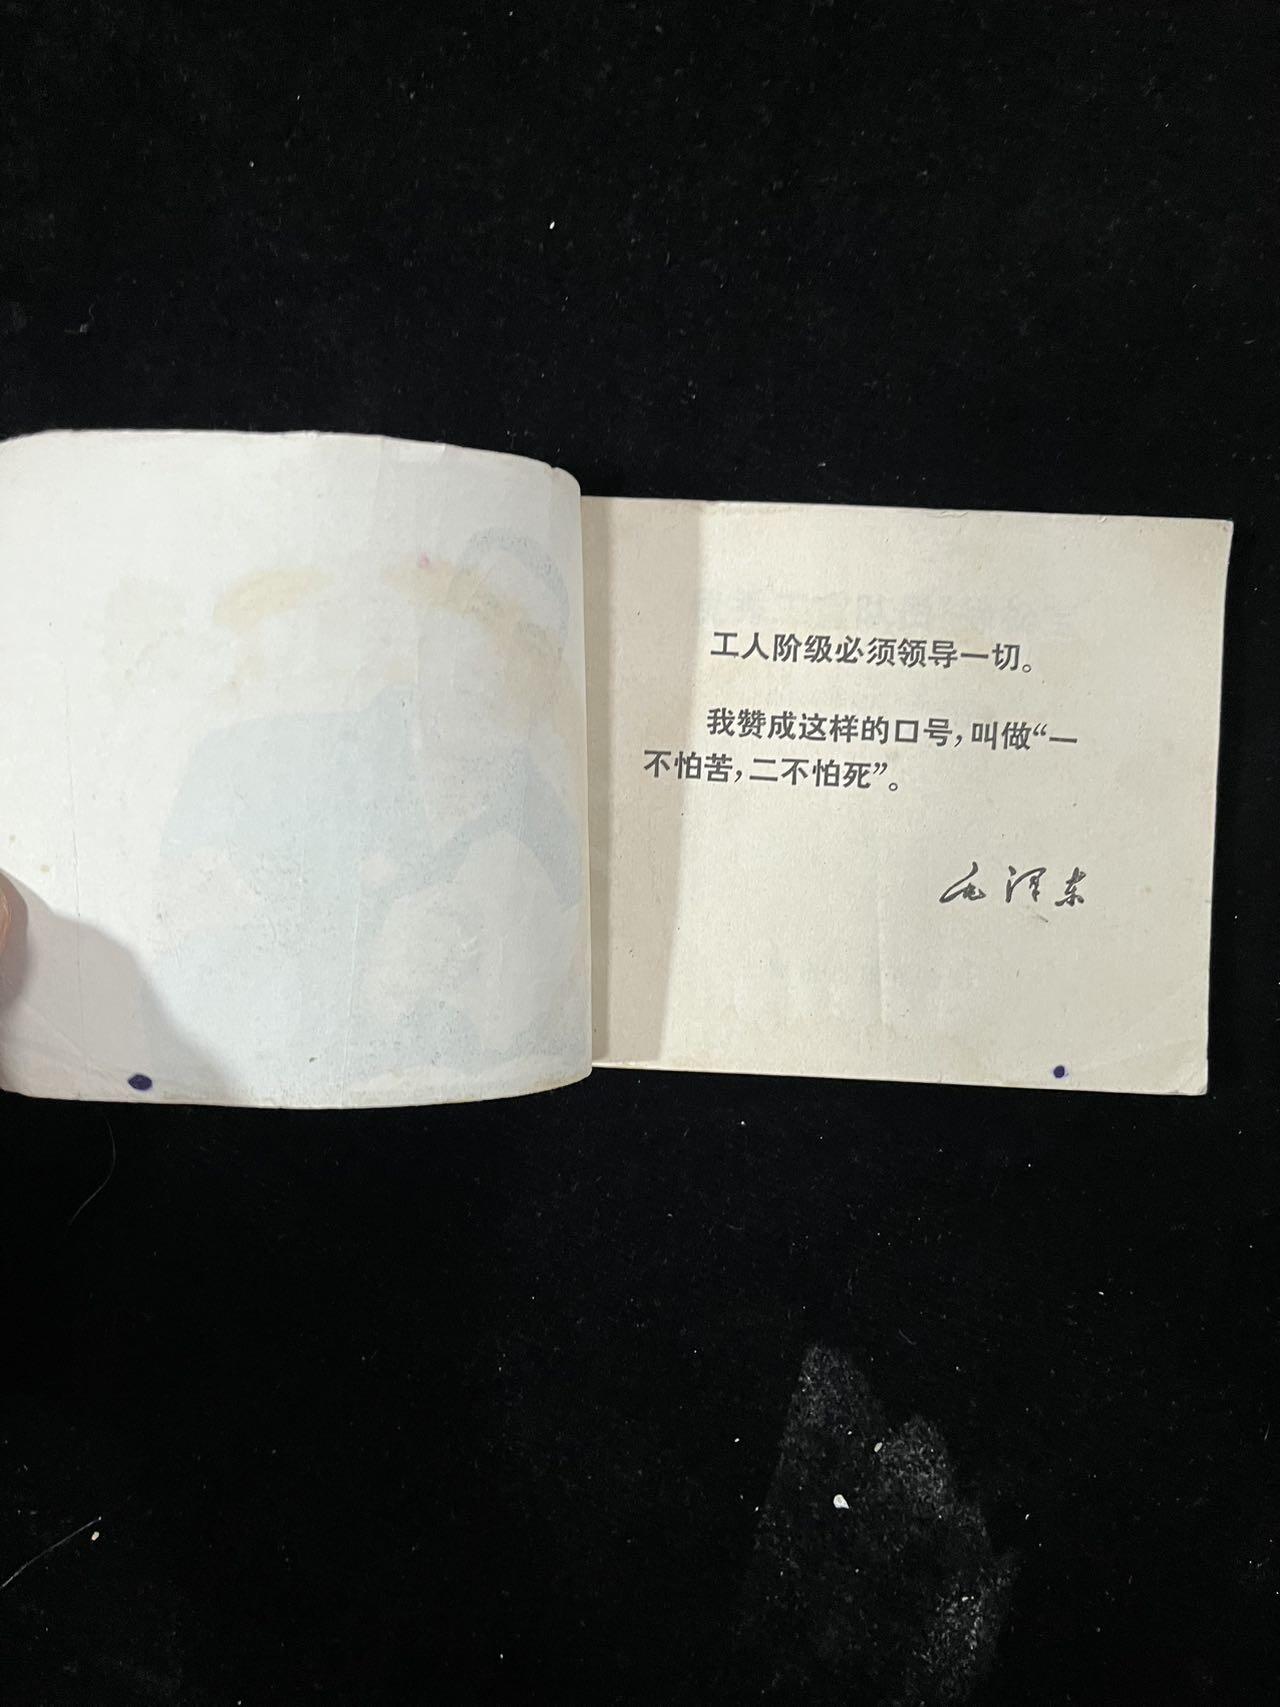 工人阶级必须领导一切。
我赞成这样的口号，叫做“一
不怕苦，二不怕死”。
毛泽东